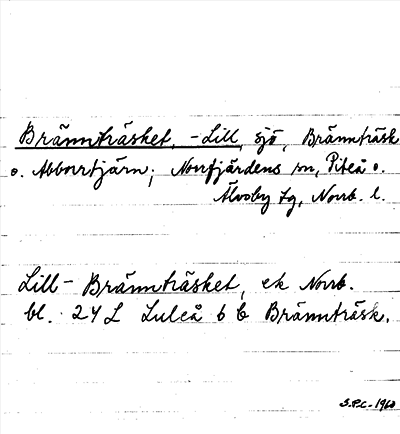 Brännträsket, -Lill, sjö, Brännträsk
o. Abborrtjärn; Norrfjärdens sn, Piteå o.
Älvsby tg, Norrb. l.
Lill-Brännträsket, ek Norrb.
bl. 24 L Luleå 6 b Brännträsk.
S.P.C-1960